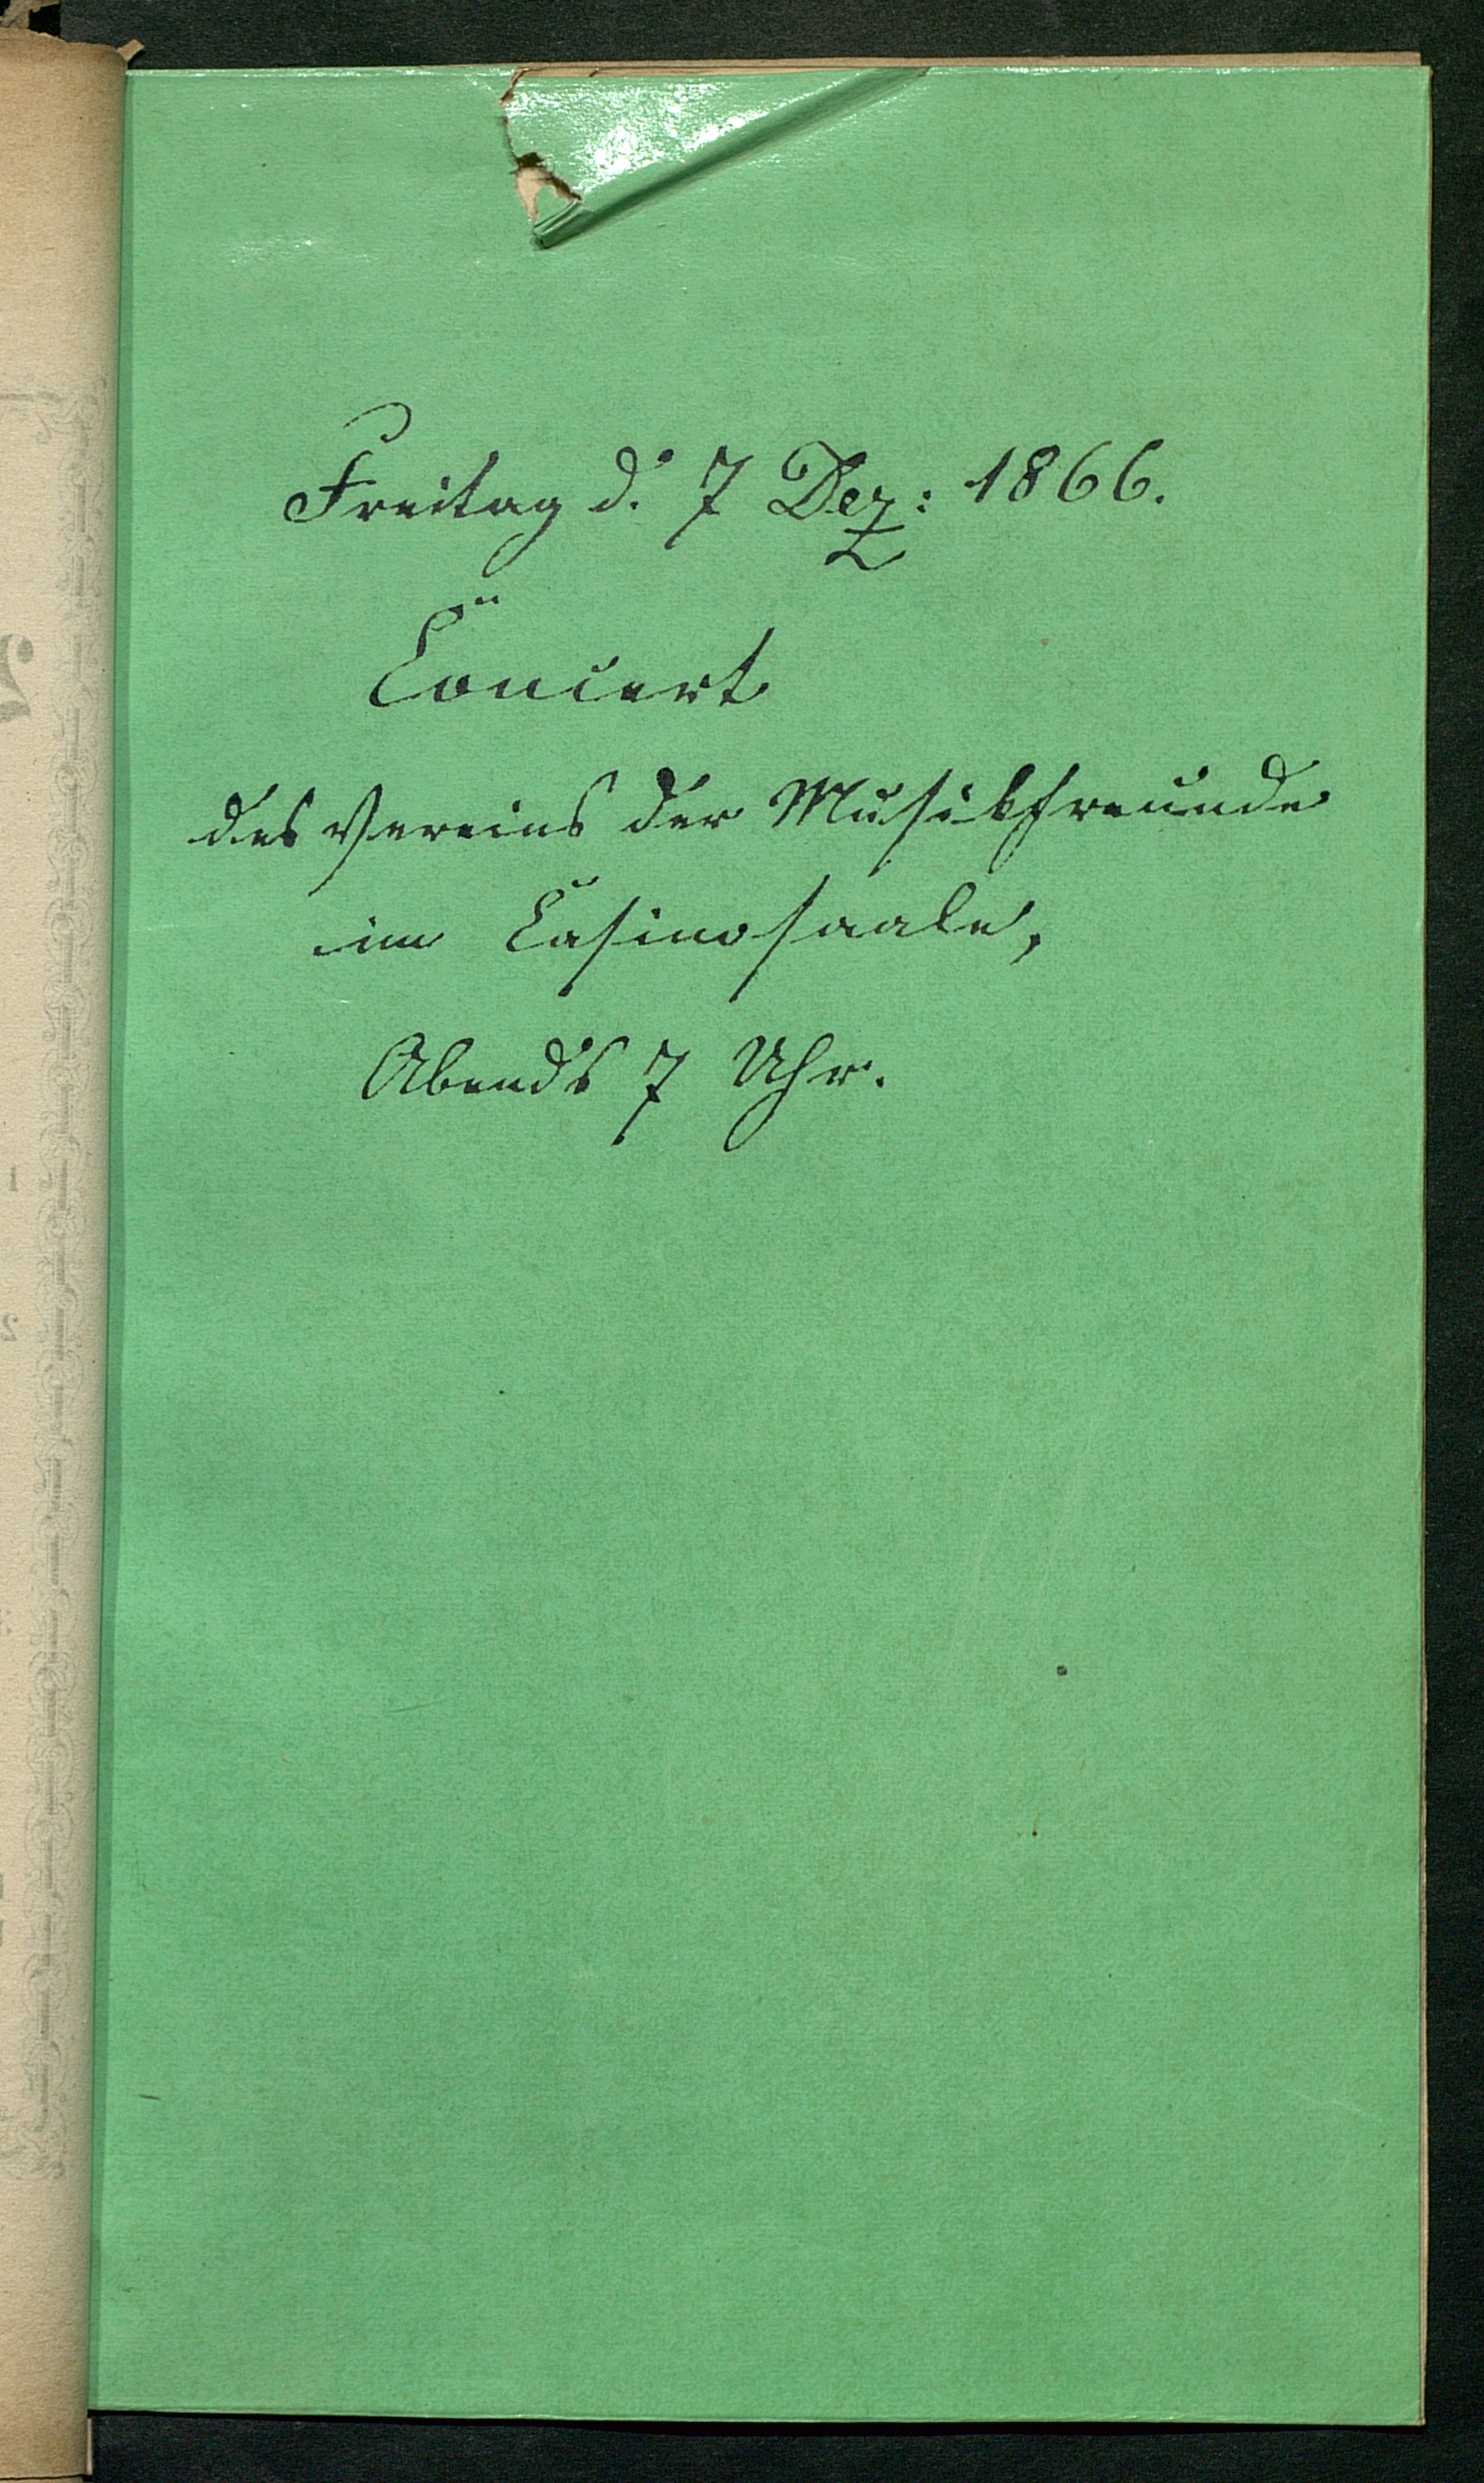 Freitag d. 7 Dez: 1866.
Concert
des Vereins der Musikfreunde
im Casinosaale,
Abends 7 Uhr.